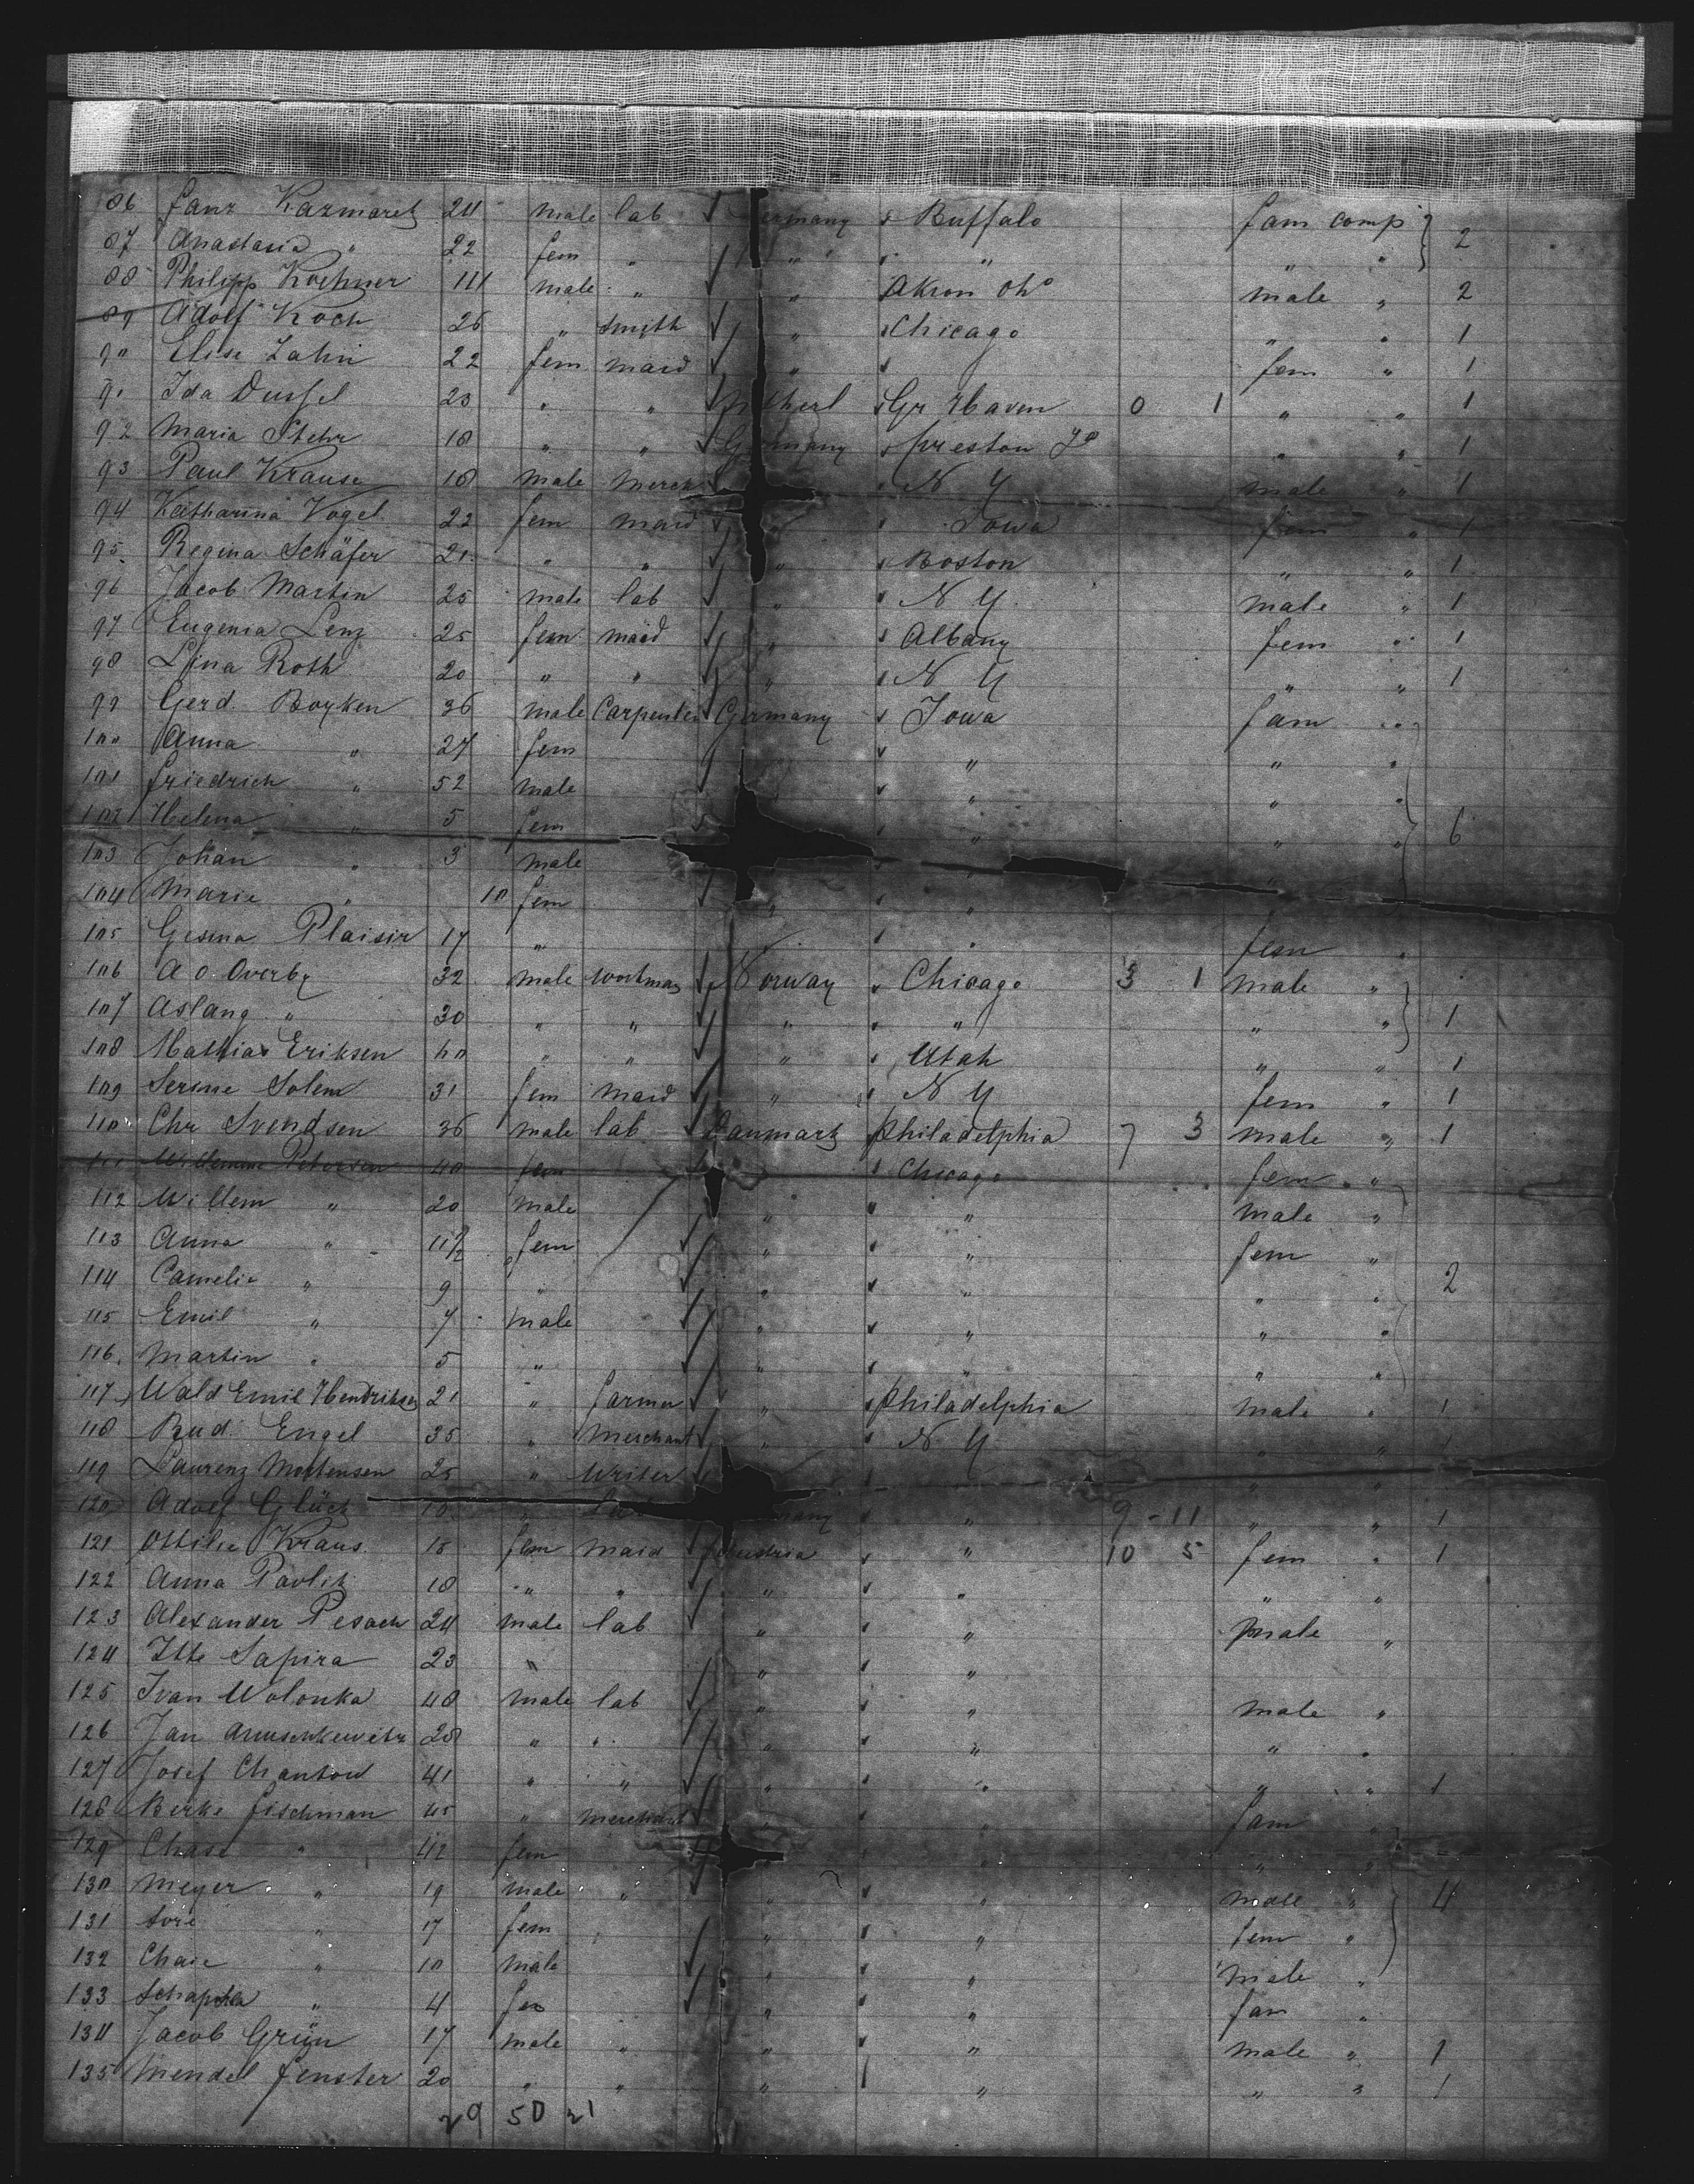 86 Franz Kazmarek 24 male lab Germany Buffalo fam comp 2
87 Anastasia " 22 fem " " " " "
88 Philipp Kochner 44 male " " Akron Oho male " 2
89 Adolf Koch 26 " Smith " Chicago " " 1
90 Elise Zahn 22 fem maid " fem " 1
91 Ida Dussel 23 " " Netherl Gr Haven 0 1 " " 1
92 Maria Stehr 18 " " Germany Preston " " 1
93 Paul Krause 18 male merch N Y male " 1
94 Katharina Vogel 22 fem maid " Iowa fem " 1
95 Regina Schäfer 21 " " " Boston " " 1
96 Jacob Martin 25 male lab " N Y male " 1
97 Eugenia Lenz 25 fem maid " Albany fem " 1
98 Lina Roth 20 " " " N Y " " 1
99 Gerd Boyken 36 male Carpenter Germany Iowa fam "
100 Anna " 27 fem " " " "
101 Friedrich " 52 male " " "
102 Helena " 5 fem " " " 6
103 Johan " 3 male " "
104 Marie " 10 fem " "
105 Gesina Plaisir 17 " " " fem "
106 A O Overby 32 male workman Norway Chicago 3 1 male "
107 Aslang " 30 " " " " " " 1
108 Mathias Eriksen 40 " " " Utah " " 1
109 Serine Solem 31 fem maid " N Y fem " 1
110 Chr Svendsen 36 male lab Danmark Philadelphia 7 3 male " 1
111 Petersen 40 fem Chicago fem "
112 Willem " 20 male " " male "
113 Anna " 11 1/2 fem " " fem "
114 Camelie " 9 " " " " " 2
115 Emil " 7 male " " " "
116 Martin " 5 " " " " "
117 Wald Emil Hendriksen 21 " farmer " Philadelphia male " 1
118 Rud Engel 35 " Merchant " N Y " " 1
119 Laurenz Mortensen 25 " Writer " "
120 Adolf Glück 18 " " 9 - 11 " " 1
121 Ottilie Kraus 18 fem maid Austria " 10 5 fem " 1
122 Anna Pavlik 18 " " " " " "
123 Alexander Pesach 24 male lab " " male "
124 Itte Sapira 23 " " "
125 Ivan Wolonka 48 male lab " " male "
126 Jan 28 " " " " " "
127 Josef Chantow 41 " " " " " " 1
128 Berke Fischman 45 " merchant " " fam "
129 Chase " 42 fem " " "
130 Meyer " 19 male " " " male " 4
131 Sore " 17 fem " " fem "
132 Chaie " 10 male " " male "
133 " 4 fem " " fam "
134 Jacob Grün 17 male " " " male " 1
135 Mendel Fenster 20 " " " " " " 1
29 50 21